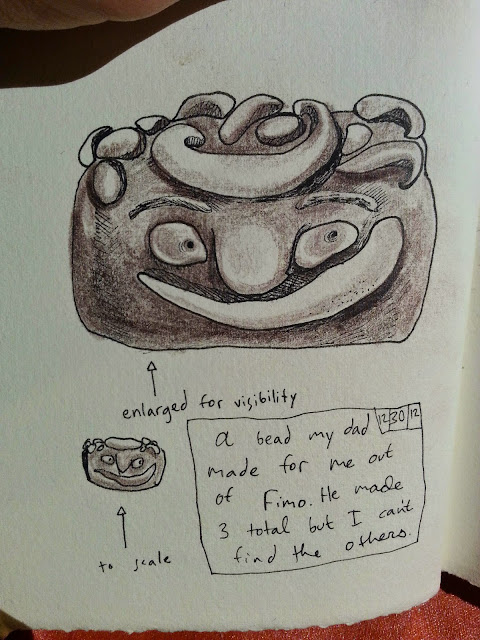 enlarged for visibility
a bead my dad
12 30 12
made for me out
of Fimo. He made
3 total but I can't
find the others.
to scale